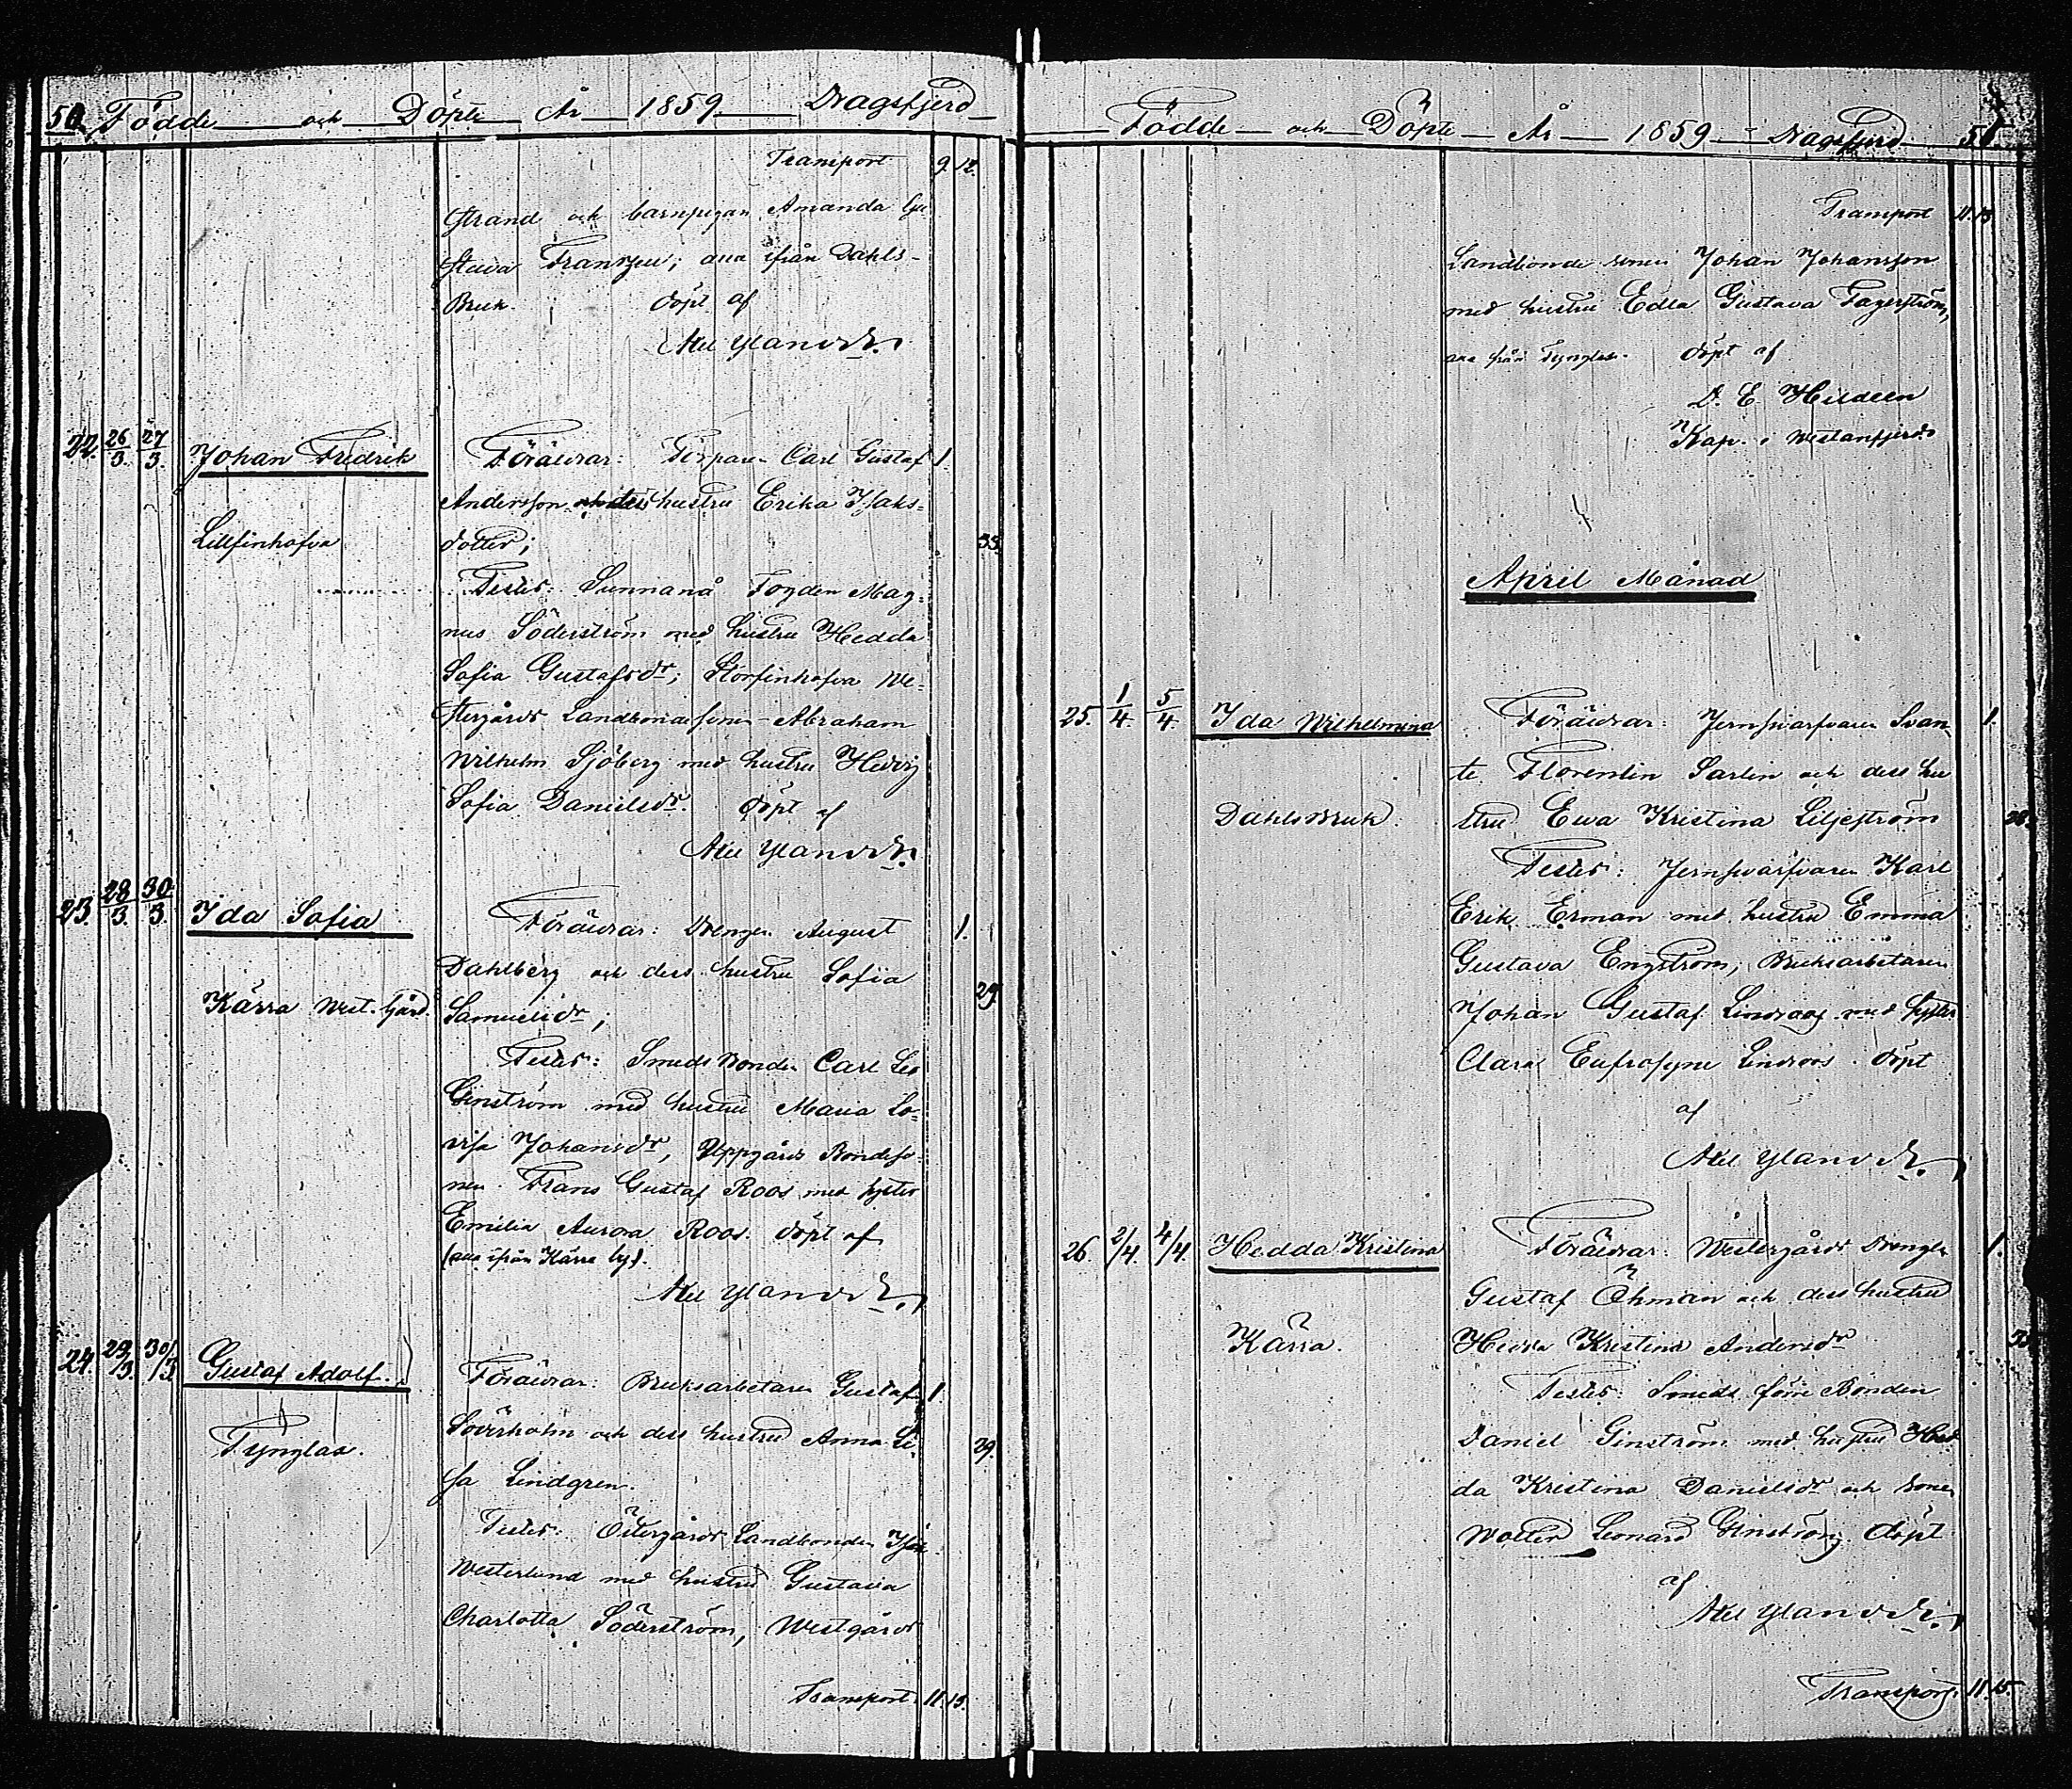 50. Födde och Döpte År 1859 Dragsfjerd
Transport 9. 12.
strand och barnpigan Amanda Gu
stava Franzen; alla ifrån Dahls-
Bruk. döpt af
Axel Ylander.
22. 26/3. 27/3. Johan Fredrik Föräldrar: Torparen Carl Gustaf 1.
Andersson och dess hustru Erika Isaks-
Lillfinhofva dotter; 33.
Testes: Sunnanå Fogden Mag-
nus Söderström med hustru Hedda
Sofia Gustafsdr; Storfinhofva We-
stergårds Landbondesonen Abraham
Wilhelm Sjöberg med hustru Hedvig
Sofia Danielsdr. döpt af
Axel Ylander.
23. 28/3. 30/3. Ida Sofia Föräldrar: Drengen August 1.
Dahlberg och dess hustru Sofia
Kärra West. Gård. Samuelsdr; 29.
Testes: Smeds Bonden Carl Leo
Ginström med hustru Maria Lo-
visa Johansdr, Uppgårds Bondeso-
nen Frans Gustaf Roos med syster
Emilia Aurora Roos. döpt af
(alla ifrån Kärra by).
Axel Ylander.
24. 29/3. 30/3. Gustaf Adolf. Föräldrar: Bruksarbetaren Gustaf 1.
Söderholm och dess hustru Anna Li-
Tynglax. sa Lindgren. 39.
Testes: Östergårds Landbonden Isak
Westerlund med hustru Gustava
Charlotta Söderström, Westgårds
Transport 11. 13.
Födde och Döpte År 1859 Dragsfjerd 51.
Transport 11. 13.
Landbonde sonen Johan Johansson
med hustru Edla Gustava Fagerström,
alla från Tynglax. döpt af
D. E. Hildeen
Kap. i Westanfjerd.
April Månad
25. 1/4. 5/4. Ida Wilhelmina Föräldrar: Jernsvarfvaren Svan- 1.
te Florentin Sarlin och dess hu
Dahls Bruk. stru Ewa Kristina Liljeström 28.
Testes: Jernsvarfvaren Karl
Erik Erman med hustru Emma
Gustava Engström; Bruksarbetaren
Johan Gustaf Lindroos med syster
Clara Eufrosyne Lindroos. döpt
af
Axel Ylander.
26. 2/4. 4/4. Hedda Kristina Föräldrar: Westergårds Drengen 1.
Gustaf Öhman och dess hustru
Kärra. Hedda Kristina Andersdr
Testes: Smeds förre Bonden
Daniel Ginström med hustru Hed
da Kristina Danielsdr och sonen
Wolter Leonard Ginström. döpt
af
Axel Ylander.
Transport. 11. 15.